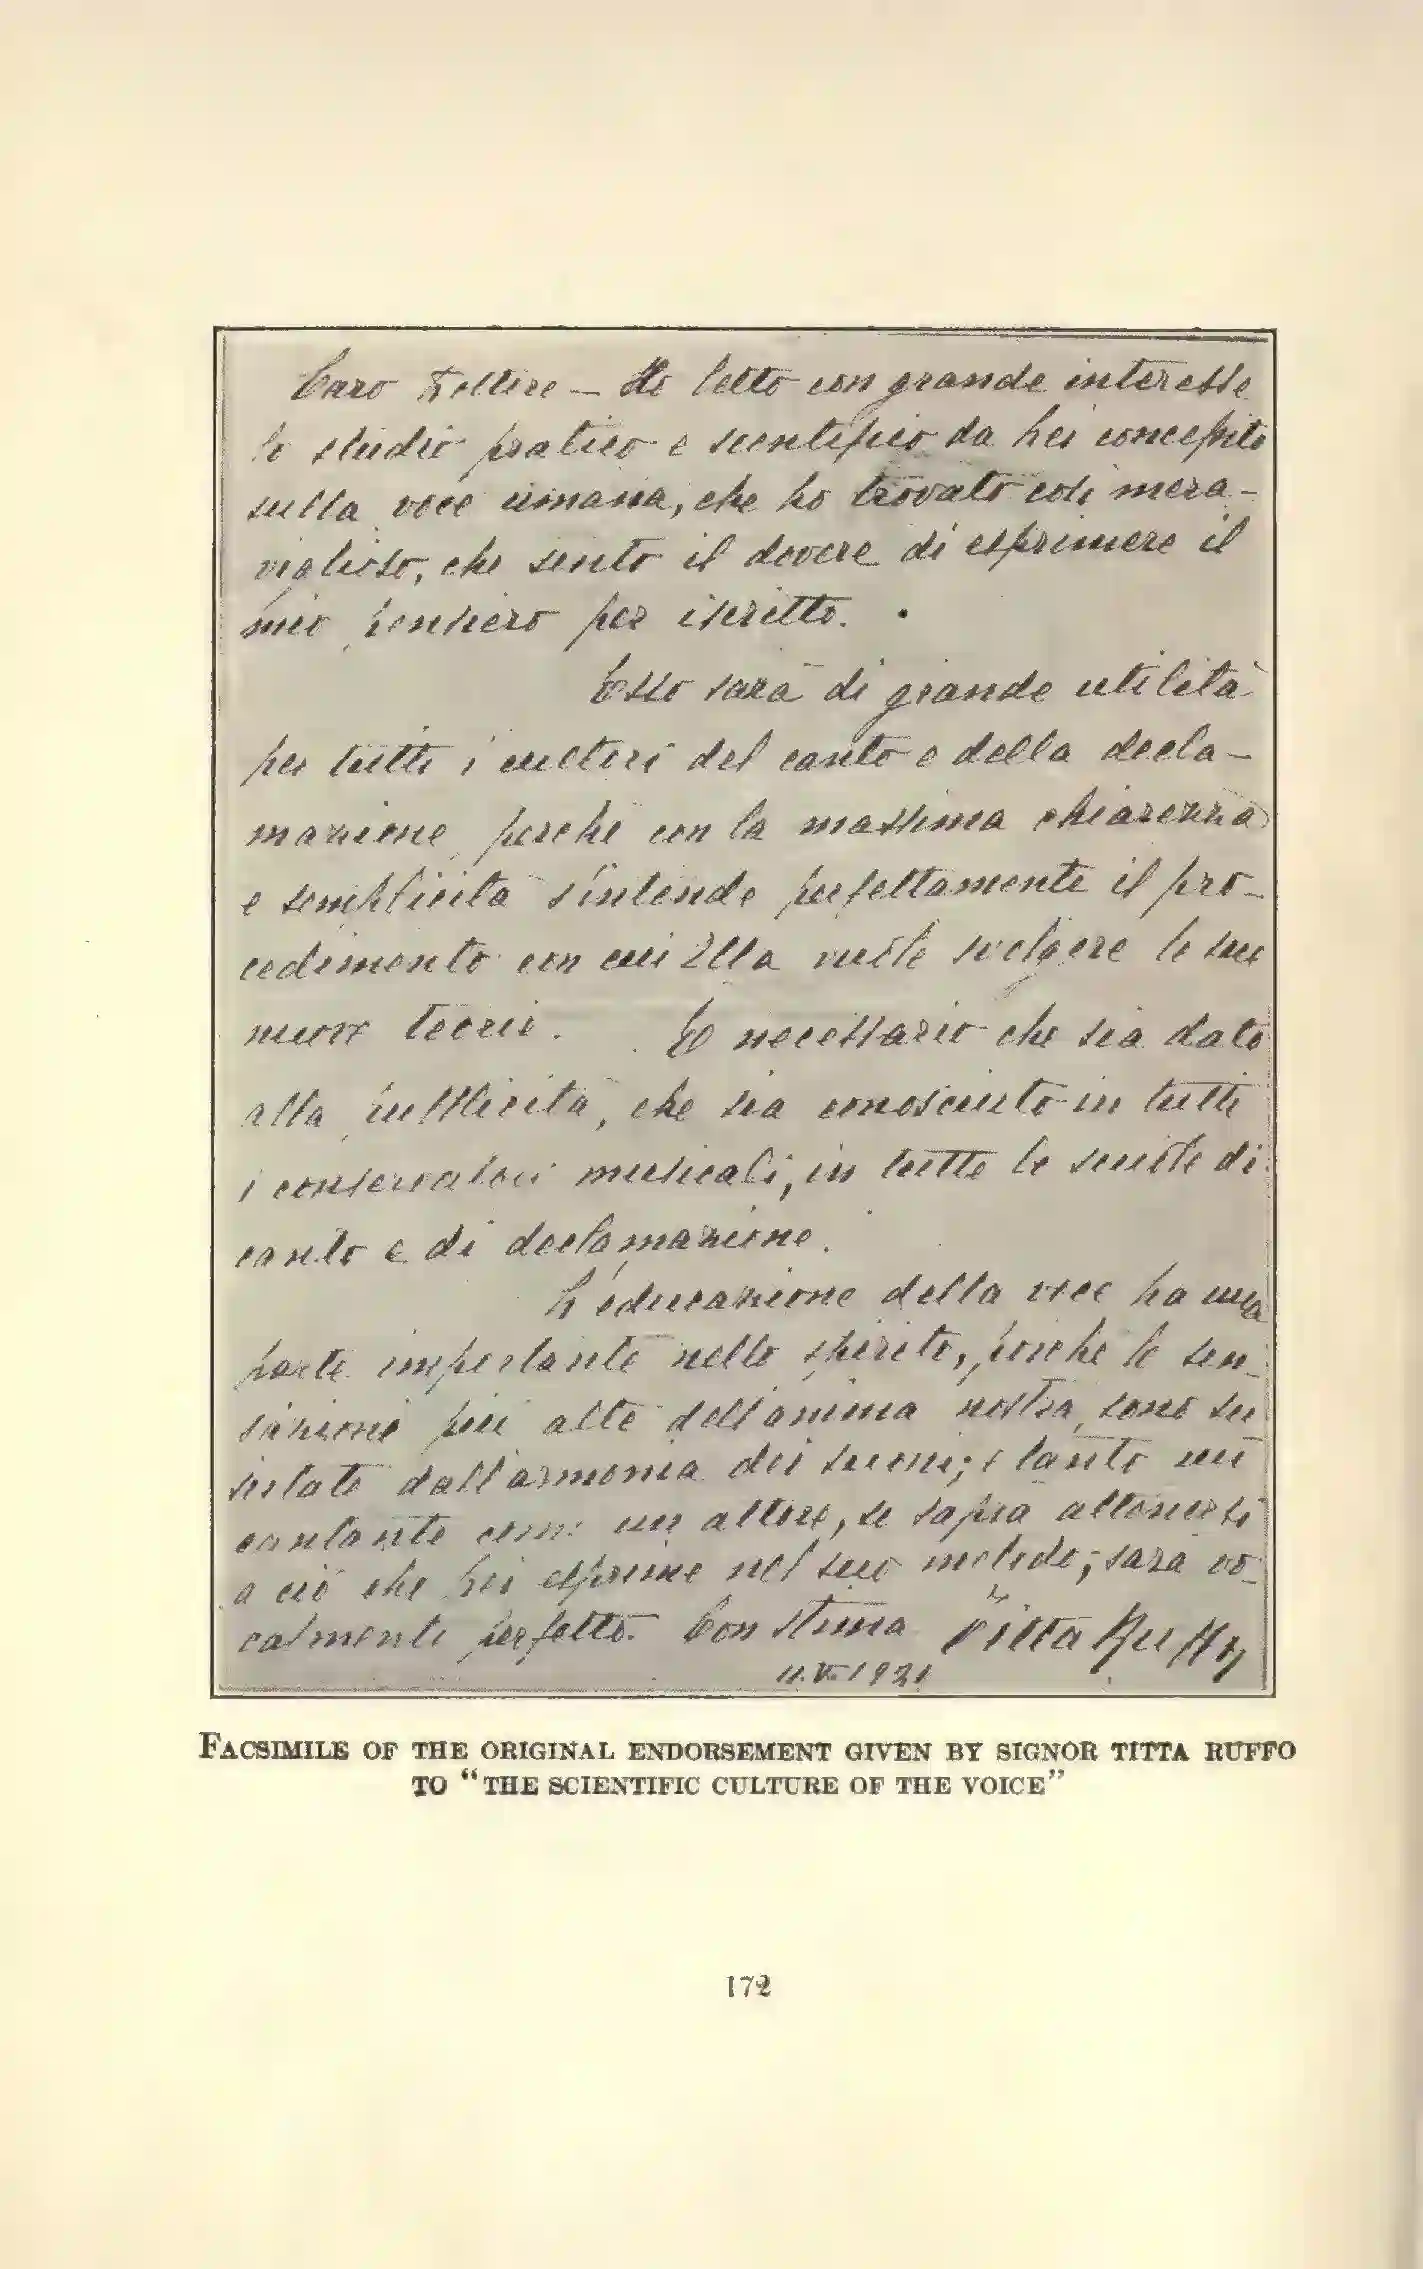 Caro Dottore — Ho letto con grande interesse
lo studio pratico e scientifico da Lei concepito
sulla voce umana, che ho trovato così mera-
viglioso, che sento il dovere di esprimere il
mio pensiero per iscritto.
Esso sarà di grande utilità
per tutti i cultori del canto e della decla-
mazione, perchè con la massima chiarezza
e semplicità s'intende perfettamente il pro-
cedimento con cui Ella vuole svolgere le sue
nuove teorie. È necessario che sia dato
alla pubblicità, che sia conosciuto in tutti
i conservatori musicali, in tutte le scuole di
canto e di declamazione.
L'educazione della voce ha una
parte importante nello spirito, poichè le sen-
sazioni più alte dell'anima nostra, sono su
scitate dall'armonia dei suoni; e tanto un
cantante come un attore, se saprà attenersi
a ciò che Lei esprime nel suo metodo, sarà vo-
calmente perfetto. Con stima Titta Ruffo
11.V.1921
FACSIMILE OF THE ORIGINAL ENDORSEMENT GIVEN BY SIGNOR TITTA RUFFO
TO "THE SCIENTIFIC CULTURE OF THE VOICE"
172